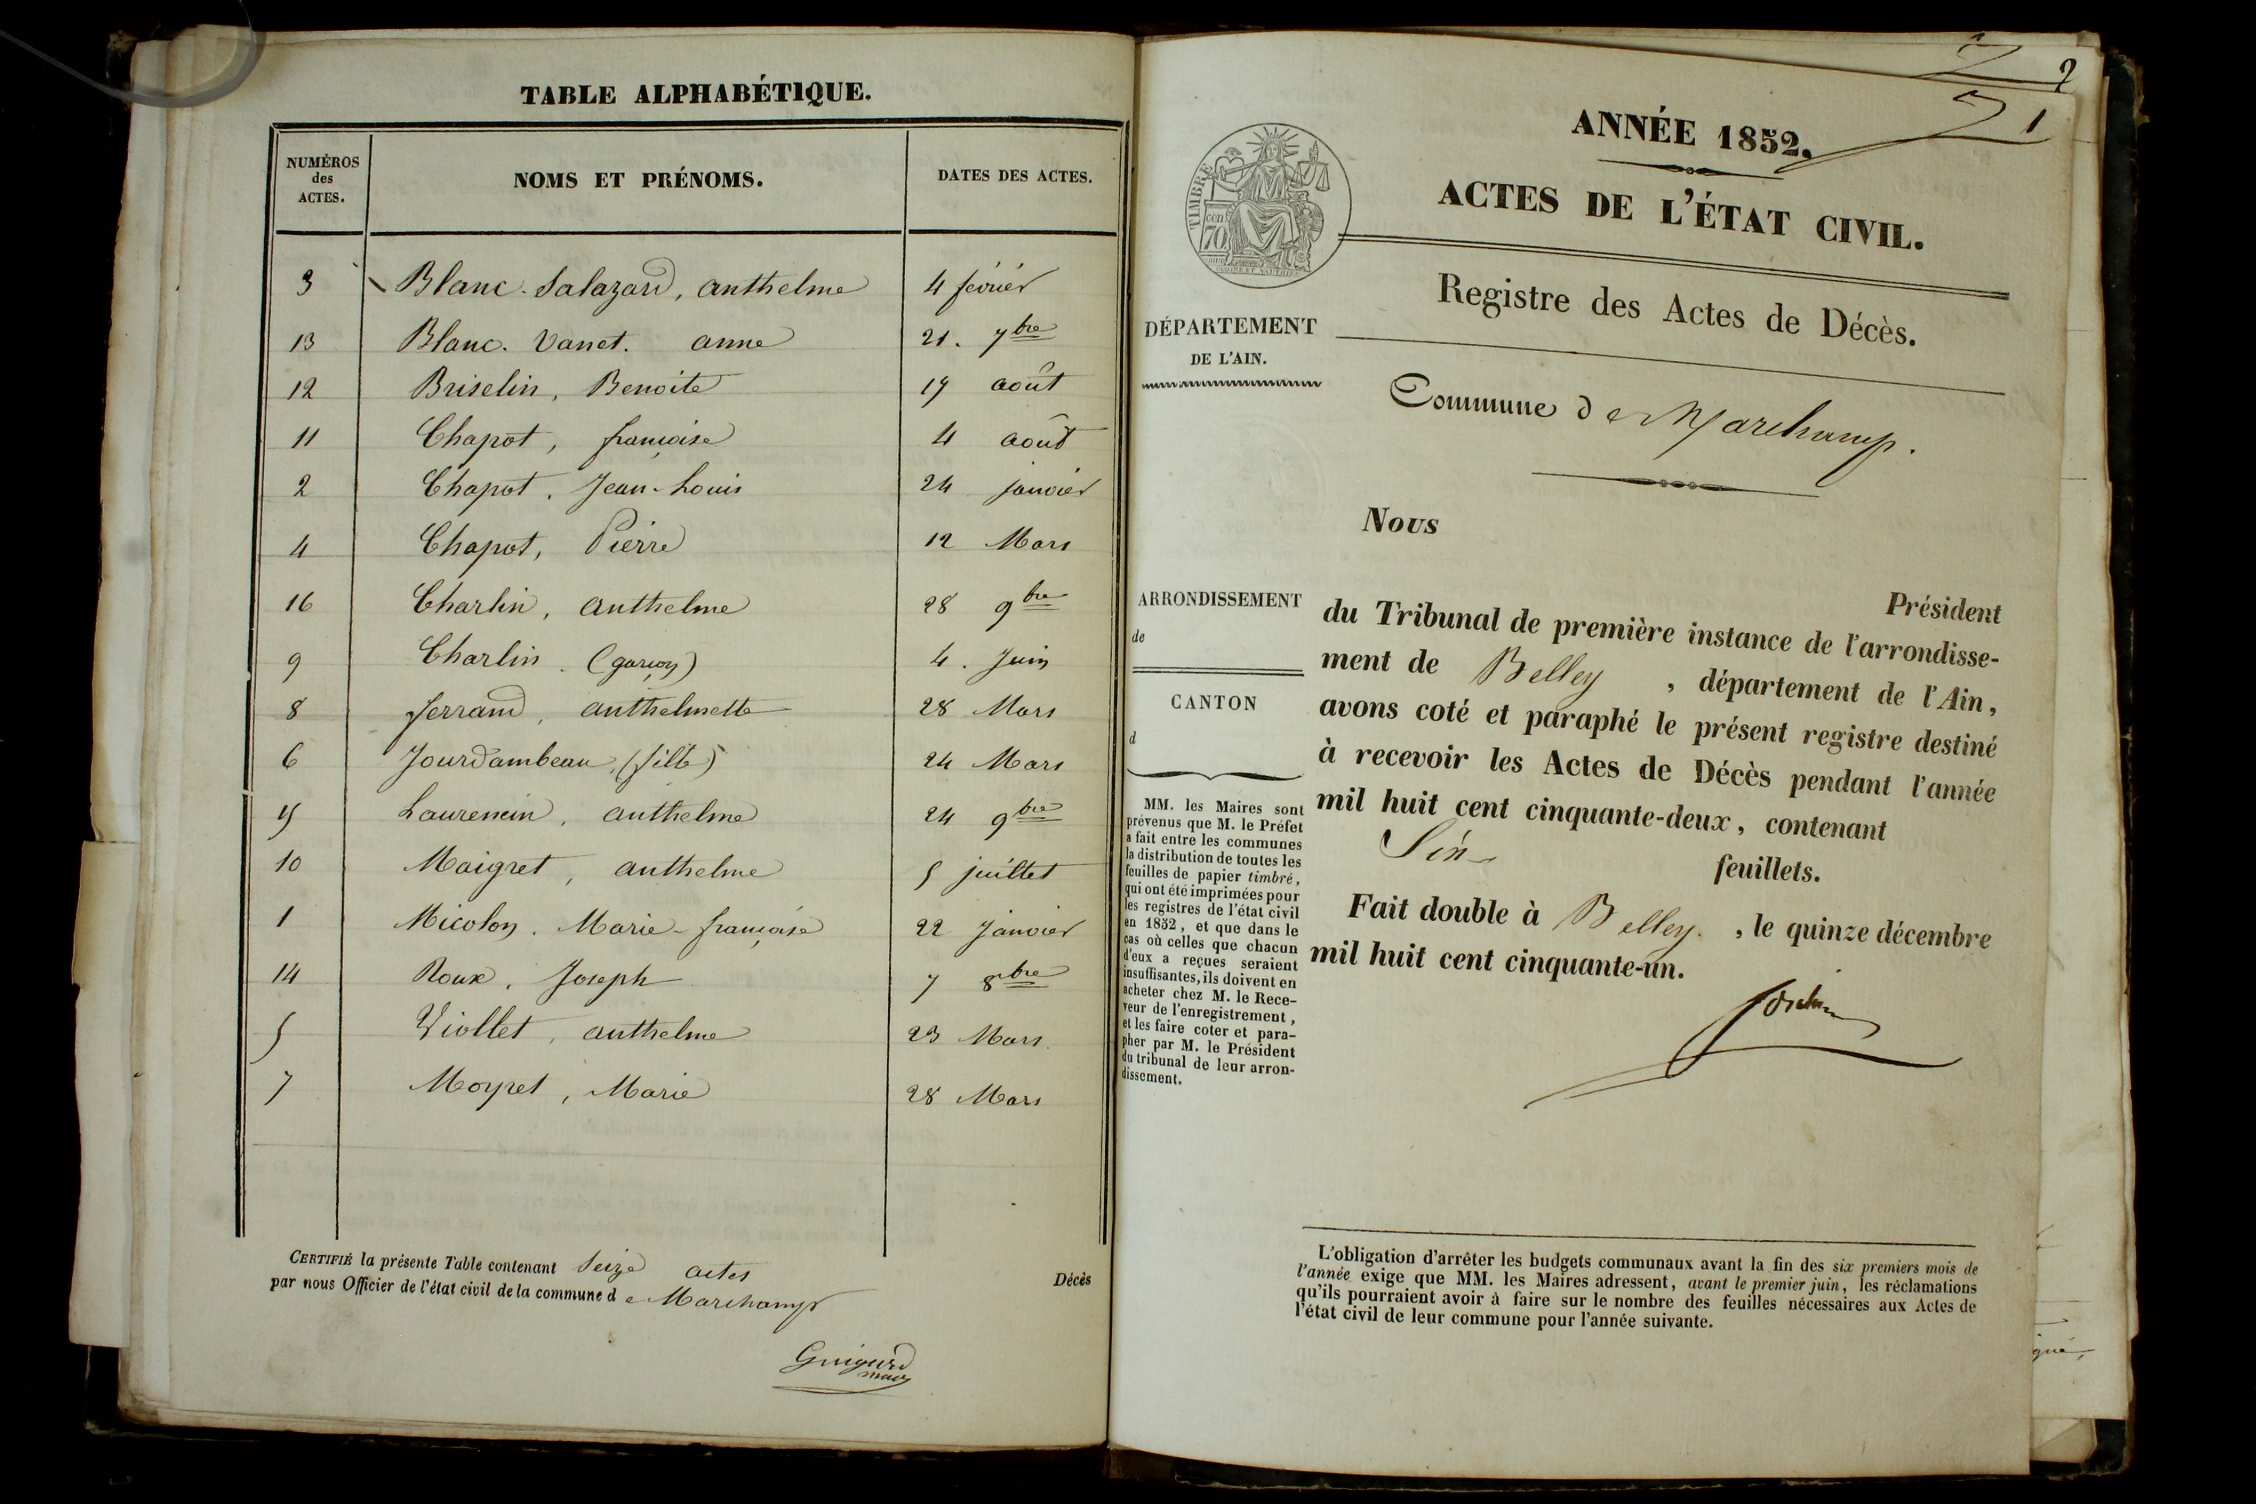 TABLE ALPHABÉTIQUE.
NUMÉROS des ACTES. NOMS ET PRÉNOMS. DATES DES ACTES.
3 Blanc-Salazard, anthelme 4 février
13 Blanc. Vanet. anne 21. 7bre
12 Briselin, Benoite 19 août
11 Chapot, françoise 4 août
2 Chapot, Jean-Louis 24 janvier
4 Chapot, Pierre 12 Mars
16 Charlin, anthelme 28 9bre
9 Charlin. (garçon) 4. Juin
8 ferrand, anthelmette 28 Mars
6 Jourdambeau, (fille) 24 Mars
15 Laurencin, anthelme 24 9bre
10 Maigret, anthelme 5 juillet
1 Micolon. Marie-françoise 22 janvier
14 Roux, Joseph 7 8bre
5 Viollet, anthelme 23 Mars.
7 Moyret, Marie 28 Mars
CERTIFIÉ la présente Table contenant Seize actes
par nous Officier de l'état civil de la commune d e Marchamp
Décès
Guigard
maire
2
1
ANNÉE 1852.
ACTES DE L'ÉTAT CIVIL.
TIMBRE
cen
70
Registre des Actes de Décès.
DÉPARTEMENT
DE L'AIN.
Commune d e Marchamp.
Nous
Président
ARRONDISSEMENT
de
CANTON
d
du Tribunal de première instance de l'arrondisse-
ment de Belley, département de l'Ain,
avons coté et paraphé le présent registre destiné
à recevoir les Actes de Décès pendant l'année
mil huit cent cinquante-deux, contenant
feuillets.
Fait double à Belley., le quinze décembre
mil huit cent cinquante-un.
MM. les Maires sont
prévenus que M. le Préfet
a fait entre les communes
la distribution de toutes les
feuilles de papier timbré,
qui ont été imprimées pour
les registres de l'état civil
en 1852, et que dans le
cas où celles que chacun
d'eux a reçues seraient
insuffisantes, ils doivent en
acheter chez M. le Rece-
veur de l'enregistrement,
et les faire coter et para-
pher par M. le Président
du tribunal de leur arron-
dissement.
L'obligation d'arrêter les budgets communaux avant la fin des six premiers mois de
l'année exige que MM. les Maires adressent, avant le premier juin, les réclamations
qu'ils pourraient avoir à faire sur le nombre des feuilles nécessaires aux Actes de
l'état civil de leur commune pour l'année suivante.